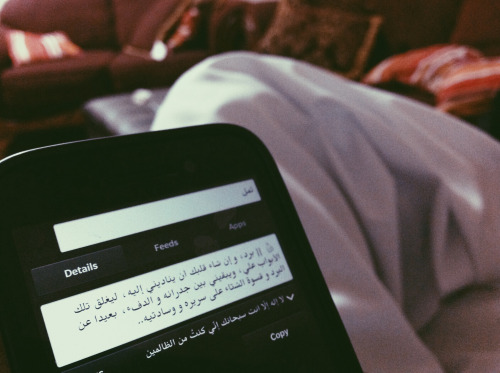 تمل
Details
Feeds
Apps
|| برد، وإن شاء قلبك أن يناديني إليه، ليغلق تلك
الأبواب علي، ويبقيني بين جدرانه و الدفء، بعيدا عن
البرد و قسوة الشتاء على سريره و وسادتيه..
لا إله إلا أنت سبحانك إني كنت من الظالمين
Copy